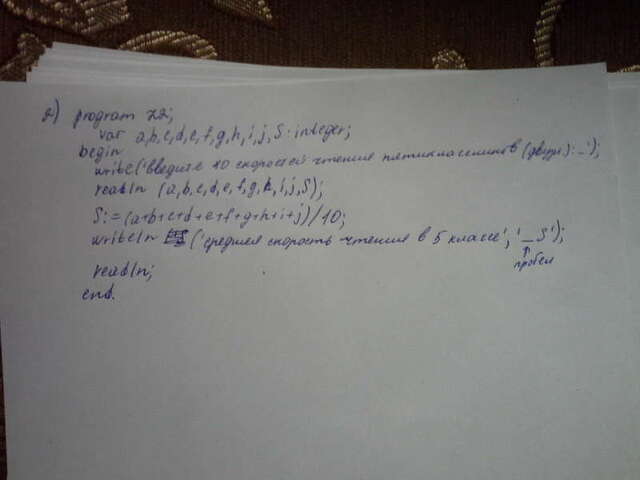 2) program z2;
var a,b,c,d,e,f,g,h,i,j,S:integer;
begin
write('введите 10 скоростей чтения пятиклассников (через):_');
readln (a,b,c,d,e,f,g,h,i,j,S);
S:=(a+b+c+d+e+f+g+h+i+j)/10;
writeln ('средняя скорость чтения в 5 классе', '_S');
пробел
readln;
end.